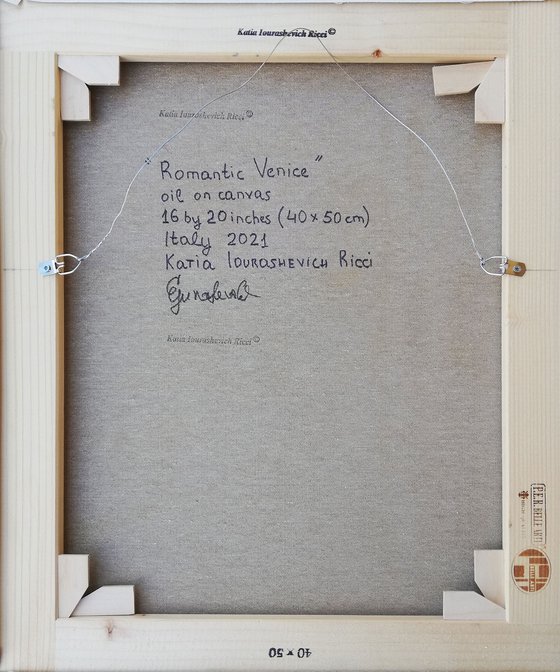 Katia Iourashevich Ricci©
Katia Iourashevich Ricci©
Romantic Venice”
oil on canvas
16 by 20 inches (40 x 50 cm)
Italy 2021
Katia Iourashevich Ricci
Katia Iourashevich Ricci©
P.E.R. BELLE ARTI
40 * 50